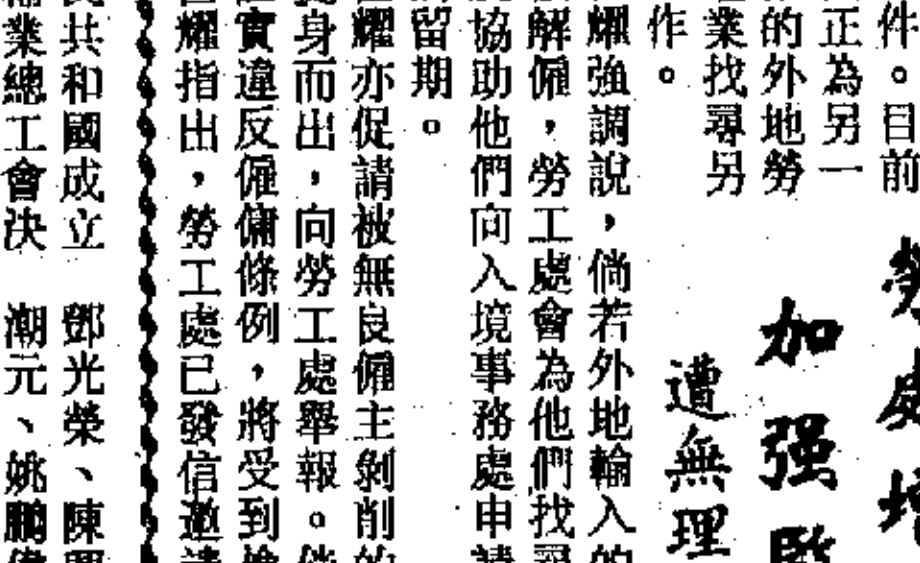 件。目前
正為另一
的外地勞
業找尋另
作。
加强
遭無理
耀強調說，倘若外地輸入的
解僱，勞工處會為他們找尋
協助他們向入境事務處申請
留期。
耀亦促請被無良僱主剝削的
身而出，向勞工處舉報。
實違反僱傭條例，將受到檢
耀指出，勞工處已發信邀請
共和國成立 鄧光榮、陳
業總工會決 潮元、姚鵬